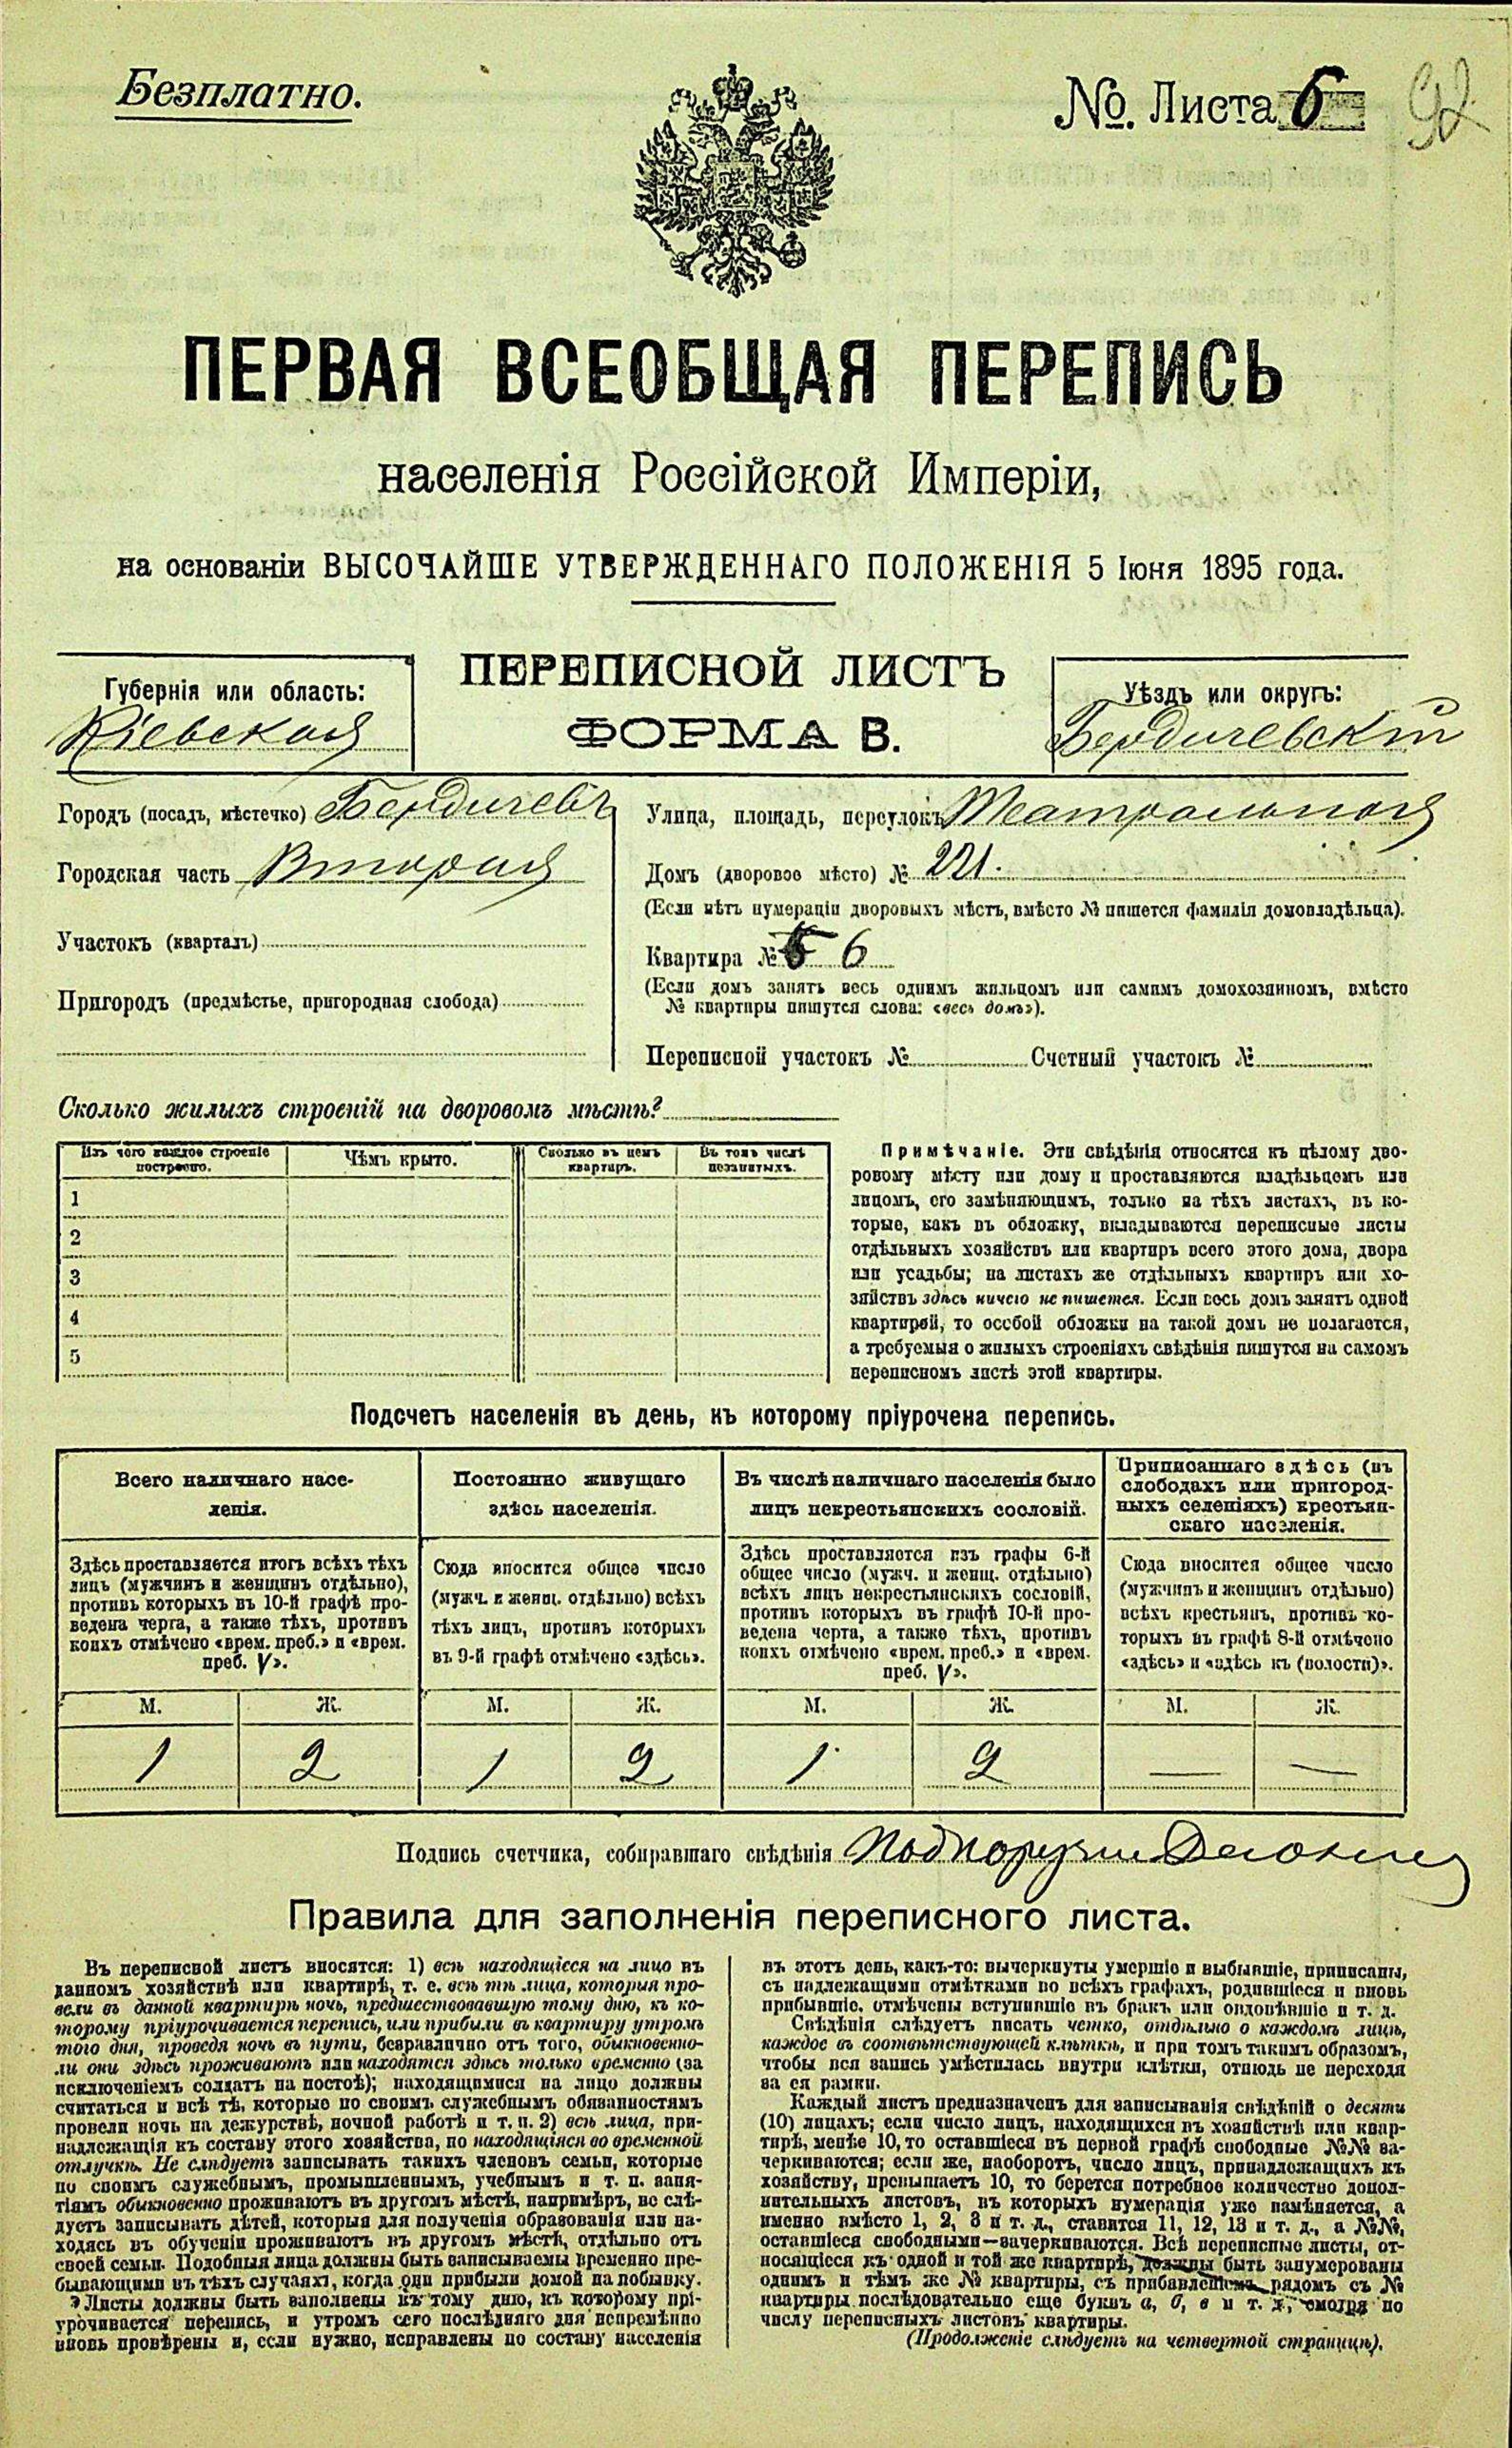 Безплатно.
№. Листа 6
92
ПЕРВАЯ ВСЕОБЩАЯ ПЕРЕПИСЬ
населенія Россійской Имперіи,
на основаніи ВЫСОЧАЙШЕ УТВЕРЖДЕННАГО ПОЛОЖЕНІЯ 5 Іюня 1895 года.
Губернія или область:
Кіевская
ПЕРЕПИСНОЙ ЛИСТЪ
ФОРМА В.
Уѣздъ или округъ:
Бердичевскій
Городъ (посадъ, мѣстечко) Бердичевъ
Городская часть Вторая
Участокъ (кварталъ)
Пригородъ (предмѣстье, пригородная слобода)
Улица, площадь, переулокъ Театральная
Домъ (дворовое мѣсто) № 221.
(Если нѣтъ нумераціи дворовыхъ мѣстъ, вмѣсто № пишется фамилія домовладѣльца).
Квартира № 6
(Если домъ занятъ весь однимъ жильцомъ или самимъ домохозяиномъ, вмѣсто
№ квартиры пишутся слова: «весь домъ»).
Переписной участокъ № Счетный участокъ №
Сколько жилыхъ строеній на дворовомъ мѣстѣ?
Изъ чего каждое строеніе
построено.
Чѣмъ крыто.
Сколько въ немъ
квартиръ.
Въ томъ числѣ
незанятыхъ.
1
2
3
4
5
Примѣчаніе. Эти свѣдѣнія относятся къ цѣлому дво-
ровому мѣсту или дому и проставляются владѣльцемъ или
лицомъ, его замѣняющимъ, только на тѣхъ листахъ, въ ко-
торые, какъ въ обложку, вкладываются переписные листы
отдѣльныхъ хозяйствъ или квартиръ всего этого дома, двора
или усадьбы; на листахъ же отдѣльныхъ квартиръ или хо-
зяйствъ здѣсь ничего не пишется. Если весь домъ занятъ одной
квартирой, то особой обложки на такой домъ не полагается,
а требуемыя о жилыхъ строеніяхъ свѣдѣнія пишутся на самомъ
переписномъ листѣ этой квартиры.
Подсчетъ населенія въ день, къ которому пріурочена перепись.
Всего наличнаго насе-
ленія.
Здѣсь проставляется итогъ всѣхъ тѣхъ
лицъ (мужчинъ и женщинъ отдѣльно),
противъ которыхъ въ 10-й графѣ про-
ведена черта, а также тѣхъ, противъ
коихъ отмѣчено «врем. преб.» и «врем.
преб. V».
Постоянно живущаго
здѣсь населенія.
Сюда вносится общее число
(мужч. и женщ. отдѣльно) всѣхъ
тѣхъ лицъ, противъ которыхъ
въ 9-й графѣ отмѣчено «здѣсь».
Въ числѣ наличнаго населенія было
лицъ некрестьянскихъ сословій.
Здѣсь проставляется изъ графы 6-й
общее число (мужч. и женщ. отдѣльно)
всѣхъ лицъ некрестьянскихъ сословій,
противъ которыхъ въ графѣ 10-й про-
ведена черта, а также тѣхъ, противъ
коихъ отмѣчено «врем. преб.» и «врем.
преб. V».
Приписаннаго здѣсь (въ
слободахъ или пригород-
ныхъ селеніяхъ) крестьян-
скаго населенія.
Сюда вносится общее число
(мужчинъ и женщинъ отдѣльно)
всѣхъ крестьянъ, противъ ко-
торыхъ въ графѣ 8-й отмѣчено
«здѣсь» и «здѣсь къ (волости)».
М. Ж. М. Ж. М. Ж. М. Ж.
1 2 1 2 1 2 — —
Подпись счетчика, собиравшаго свѣдѣнія
Правила для заполненія переписного листа.
Въ переписной листъ вносятся: 1) всѣ находящіеся на лицо въ
данномъ хозяйствѣ или квартирѣ, т. е. всѣ тѣ лица, которыя про-
вели въ данной квартирѣ ночь, предшествовавшую тому дню, къ ко-
торому пріурочивается перепись, или прибыли въ квартиру утромъ
того дня, проведя ночь въ пути, безразлично отъ того, обыкновенно-
ли они здѣсь проживаютъ или находятся здѣсь только временно (за
исключеніемъ солдатъ на постоѣ); находящимися на лицо должны
считаться и всѣ тѣ, которые по своимъ служебнымъ обязанностямъ
провели ночь на дежурствѣ, ночной работѣ и т. п. 2) всѣ лица, при-
надлежащія къ составу этого хозяйства, но находящіяся во временной
отлучкѣ. Не слѣдуетъ записывать такихъ членовъ семьи, которые
по своимъ служебнымъ, промышленнымъ, учебнымъ и т. п. заня-
тіямъ обыкновенно проживаютъ въ другомъ мѣстѣ, напримѣръ, не слѣ-
дуетъ записывать дѣтей, которыя для полученія образованія или на-
ходясь въ обученіи проживаютъ въ другомъ мѣстѣ, отдѣльно отъ
своей семьи. Подобныя лица должны быть записываемы временно пре-
бывающими въ тѣхъ случаяхъ, когда они прибыли домой на побывку.
Листы должны быть заполнены къ тому дню, къ которому прі-
урочивается перепись, и утромъ сего послѣдняго дня непремѣнно
вновь провѣрены и, если нужно, исправлены по составу населенія
въ этотъ день, какъ-то: вычеркнуты умершіе и выбывшіе, приписаны,
съ надлежащими отмѣтками во всѣхъ графахъ, родившіеся и вновь
прибывшіе, отмѣчены вступившіе въ бракъ или овдовѣвшіе и т. д.
Свѣдѣнія слѣдуетъ писать четко, отдѣльно о каждомъ лицѣ,
каждое въ соотвѣтствующей клѣткѣ, и при томъ такимъ образомъ,
чтобы вся запись умѣстилась внутри клѣтки, отнюдь не переходя
за ея рамки.
Каждый листъ предназначенъ для записыванія свѣдѣній о десяти
(10) лицахъ; если число лицъ, находящихся въ хозяйствѣ или квар-
тирѣ, менѣе 10, то оставшіеся въ первой графѣ свободные №№ за-
черкиваются; если же, наоборотъ, число лицъ, принадлежащихъ къ
хозяйству, превышаетъ 10, то берется потребное количество допол-
нительныхъ листовъ, въ которыхъ нумерація уже намѣняется, а
именно вмѣсто 1, 2, 3 и т. д., ставится 11, 12, 13 и т. д., а №№,
оставшіеся свободными—зачеркиваются. Всѣ переписные листы, от-
носящіеся къ одной и той же квартирѣ, должны быть занумерованы
однимъ и тѣмъ же № квартиры, съ прибавленіемъ рядомъ съ №
квартиры послѣдовательно еще буквъ а, б, в и т. д., смотря по
числу переписныхъ листовъ квартиры.
(Продолженіе слѣдуетъ на четвертой страницѣ).